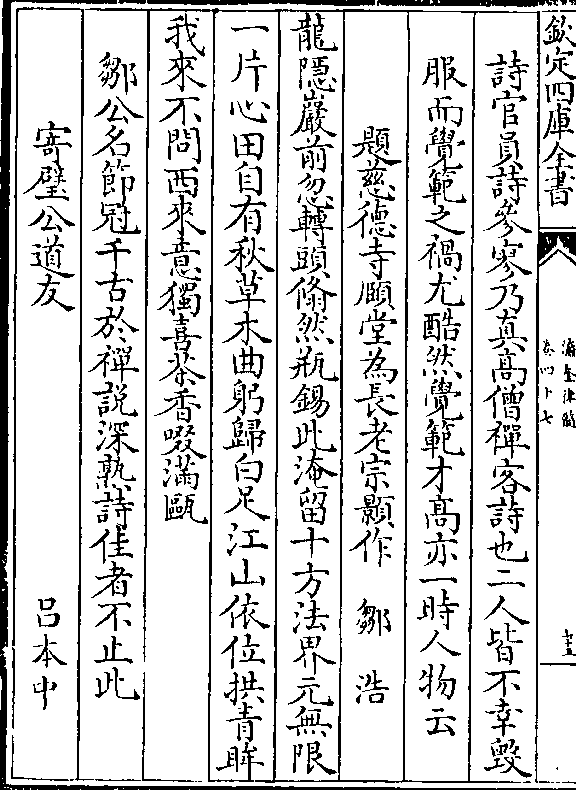 欽定四庫全書
瀛奎律髓
卷四十七
詩官員詩參寥乃真高僧禪客詩也二人皆不幸毀
服而覺範之禍尤酷然覺範才高亦一時人物云
題慈德寺頤堂為長老宗顥作 鄒浩
龍隱巖前忽轉頭翛然瓶錫此淹留十方法界元無限
一片心田自有秋草木曲躬歸白足江山依位拱青眸
我來不問西來意獨喜茶香啜滿甌
鄒公名節冠千古於禪說深熟詩佳者不止此
寄璧公道友 呂本中